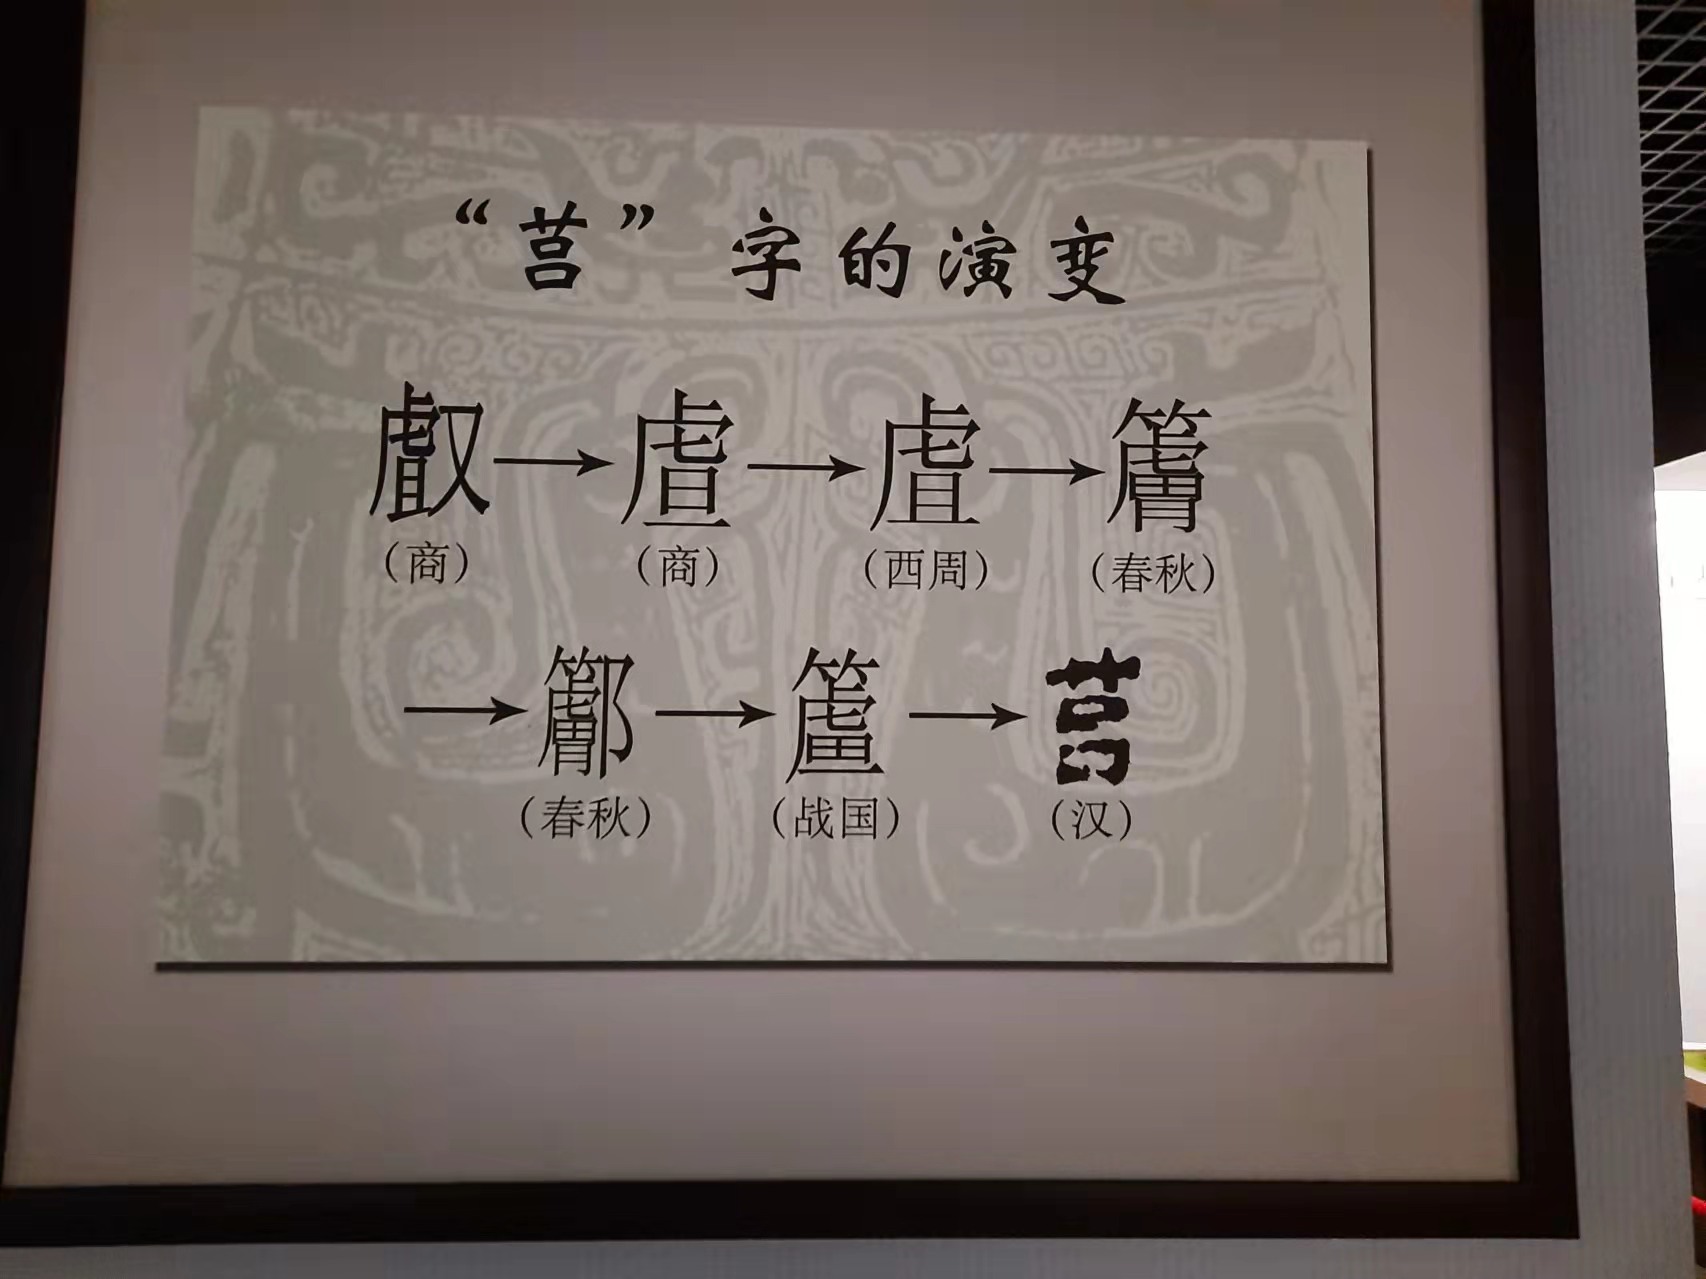 “莒”字的演变
虘
(商) (商) (西周) (春秋)
莒
(春秋) (战国) (汉)